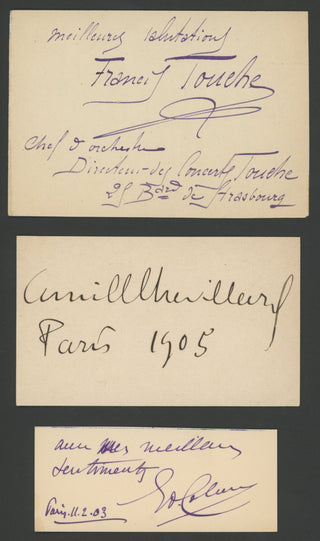 Meilleures salutations
Francis Touche
Chef d'orchestre
Directeur des Concerts Touche
25 Bard de Strasbourg
Camille Chevillard
Paris 1905
avec mes meilleurs
sentiments
Ed. Colonne
Paris. 11.2.03